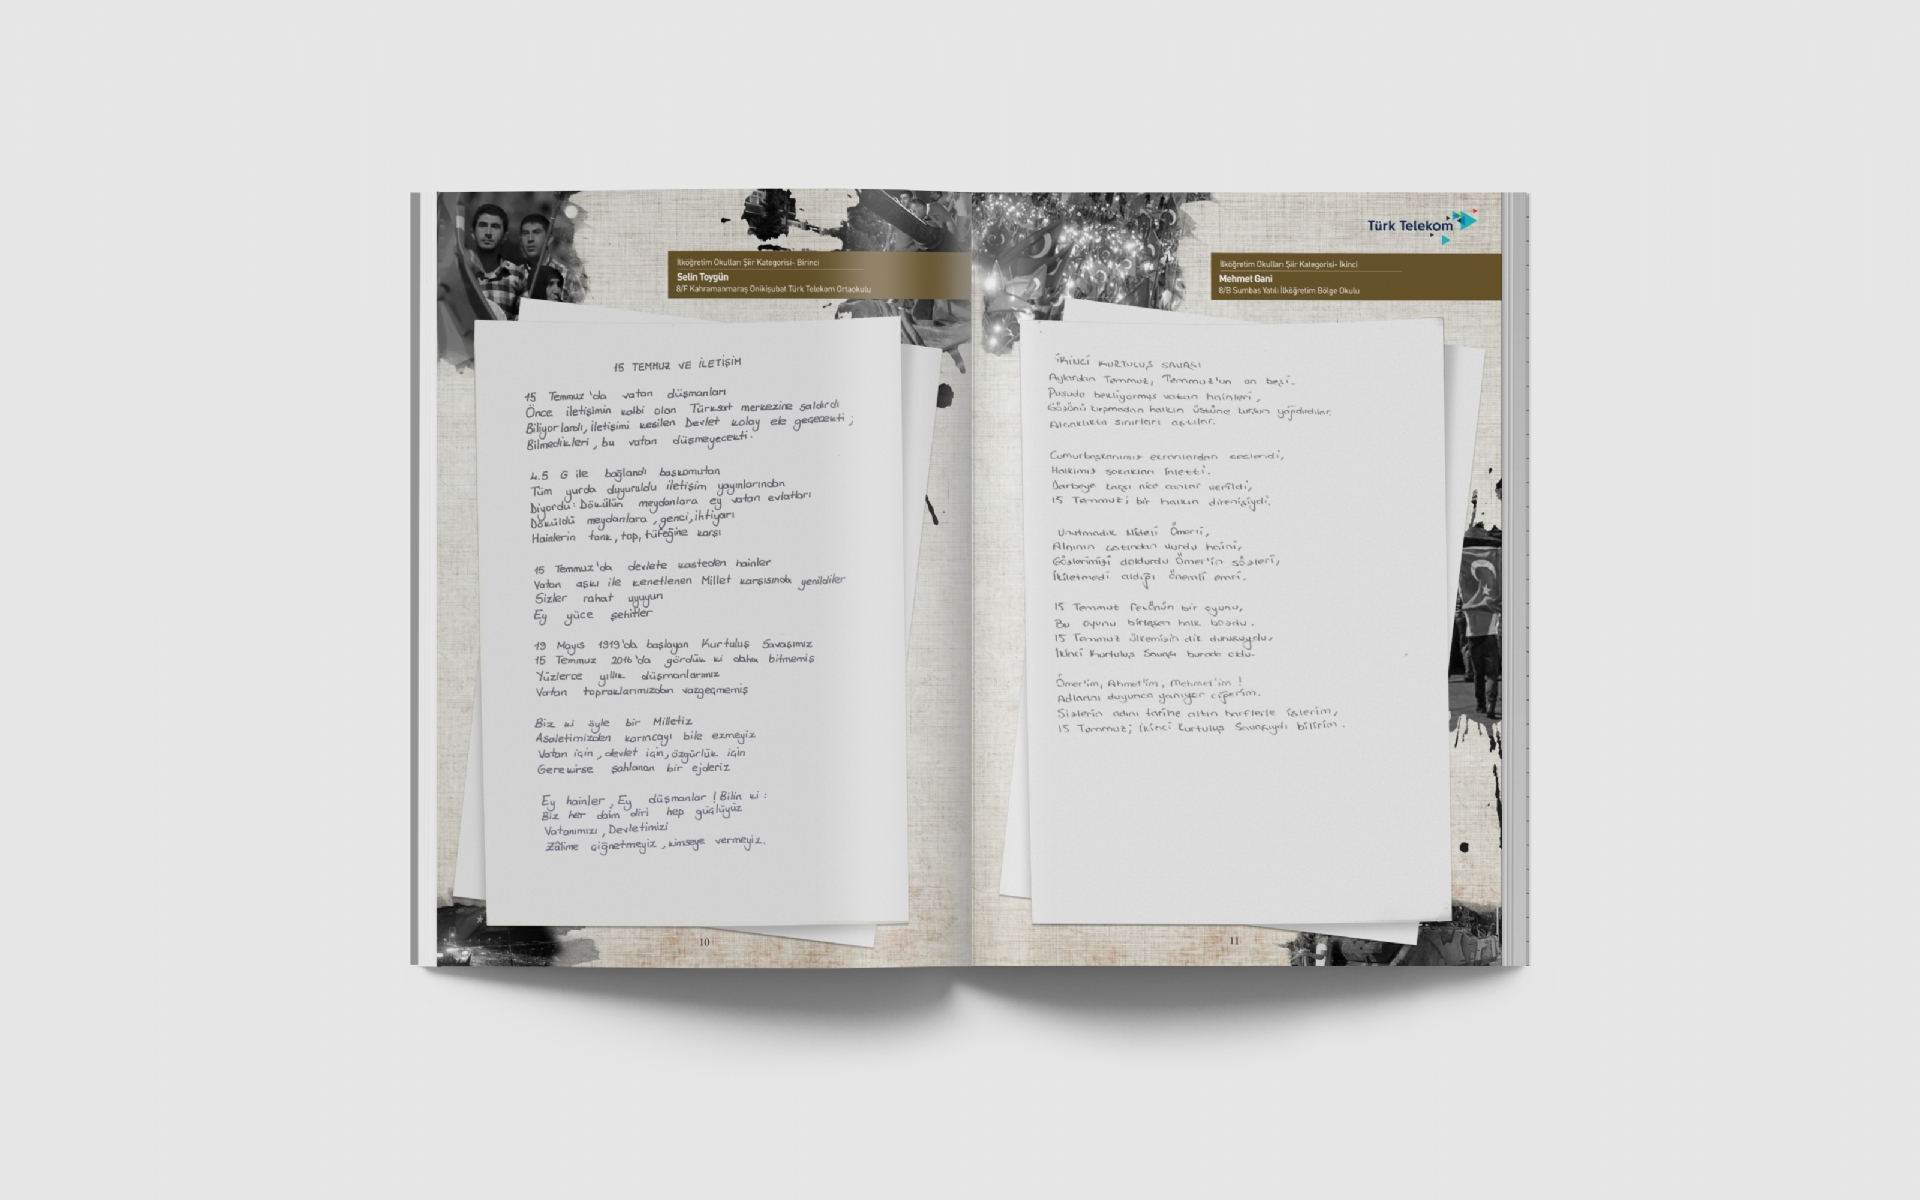 İlköğretim Okulları Şiir Kategorisi- Birinci
Selin Toygün
8/F Kahramanmaraş Onikişubat Türk Telekom Ortaokulu
15 TEMMUZ VE İLETİŞİM
15 Temmuz'da vatan düşmanları
Önce iletişimin kalbi olan Türksat merkezine saldırdı
Biliyorlardı, iletişimi kesilen Devlet kolay ele geçecekti ;
Bilmedikleri, bu vatan düşmeyecekti.
4.5 G ile bağlandı başkomutan
Tüm yurda duyuruldu iletişim yayınlarından
Diyordu: Dökülün meydanlara ey vatan evlatları
Döküldü meydanlara, genci, ihtiyarı
Hainlerin tank, top, tüfeğine karşı
15 Temmuz'da devlete kasteden hainler
Vatan aşkı ile kenetlenen Millet karşısında yenildiler
Sizler rahat uyuyun
Ey yüce şehitler
19 Mayıs 1919'da başlayan Kurtuluş Savaşımız
15 Temmuz 2016'da gördük ki daha bitmemiş
Yüzlerce yıllık düşmanlarımız
Vatan topraklarımızdan vazgeçmemiş
Biz ki öyle bir Milletiz
Asaletimizden karıncayı bile ezmeyiz
Vatan için, devlet için, özgürlük için
Gerekirse şahlanan bir ejderiz
Ey hainler, Ey düşmanlar ! Bilin ki :
Biz her daim diri hep güçlüyüz
Vatanımızı, Devletimizi
Zâlime çiğnetmeyiz, kimseye vermeyiz.
10
Türk Telekom
İlköğretim Okulları Şiir Kategorisi- İkinci
Mehmet Gani
8/B Sumbas Yatılı İlköğretim Bölge Okulu
İKİNCİ KURTULUŞ SAVAŞI
Aylardan Temmuz, Temmuz'un on beşi.
Pusuda bekliyormuş vatan hainleri,
Gözünü kırpmadan halkın üstüne kurşun yağdırdılar.
Alçaklıkta sınırları aştılar.
Cumurbaşkanımız ekranlardan seslendi,
Halkımız sokakları inletti.
Darbeye karşı nice canlar verildi,
15 Temmuz; bir halkın direnişiydi.
Unutmadık Niğdeli Ömer'i,
Alnının çatından vurdu haini,
Gözlerimizi doldurdu Ömer'in sözleri,
İkiletmedi aldığı önemli emri.
15 Temmuz fetönün bir oyunu,
Bu oyunu birleşen halk bozdu.
15 Temmuz ülkemizin dik duruşuydu,
İkinci Kurtuluş Savaşı burada oldu.
Ömer'im, Ahmet'im, Mehmet'im !
Adlarını duyunca yanıyor ciğerim.
Sizlerin adını tarihe altın harflerle işlerim,
15 Temmuz; İkinci Kurtuluş Savaşıydı bilirim.
11